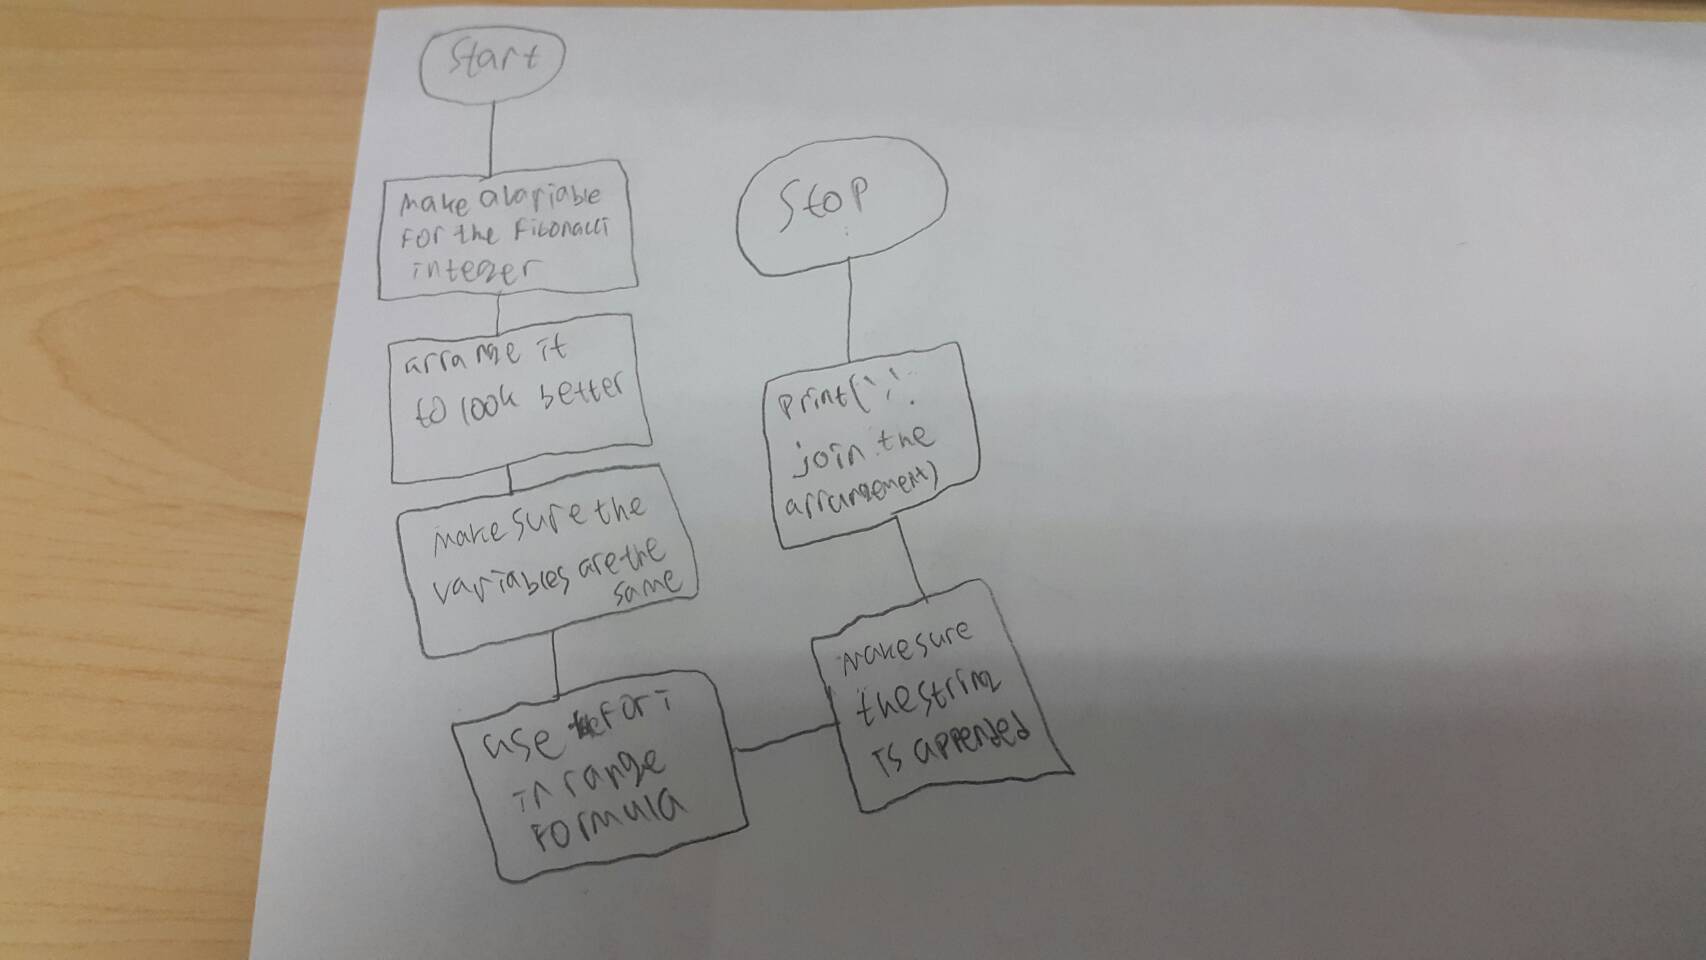 Start
make a variable
for the Fibonacci
integer
arrange it
to look better
make sure the
variables are the
same
use for i
in range
formula
make sure
the string
is appended
print(','.
join the
arrangement)
Stop